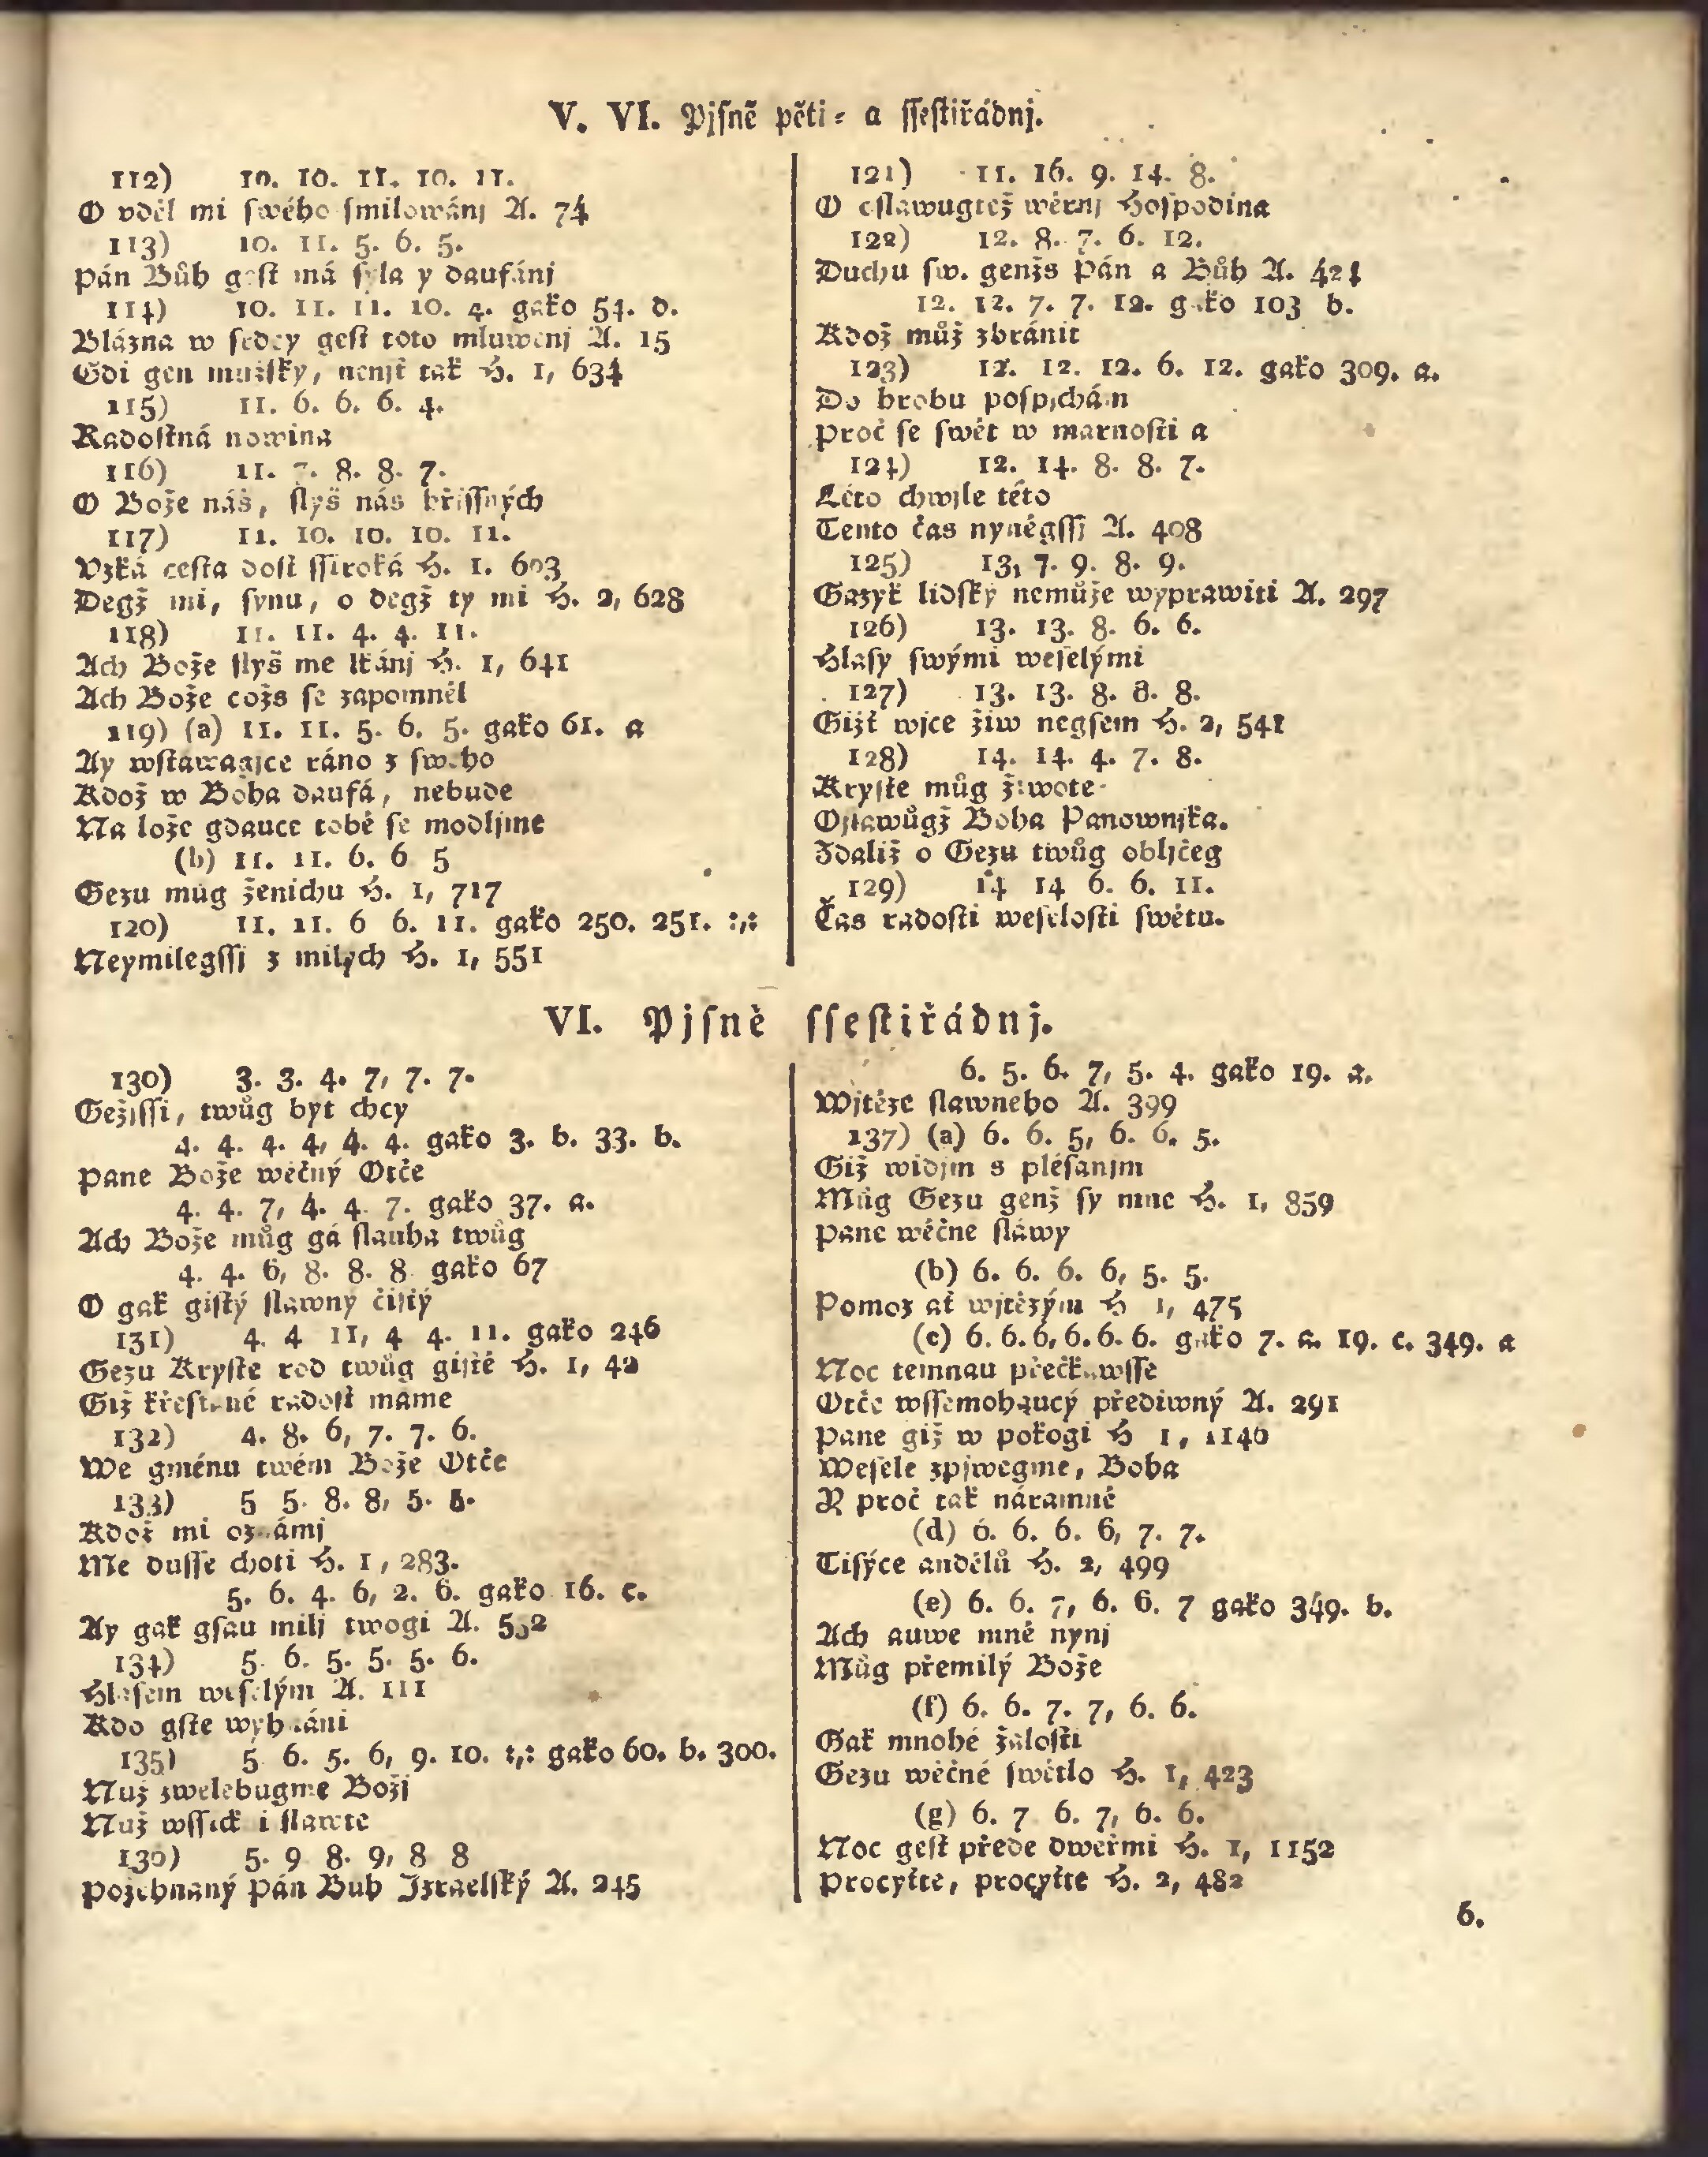 V. VI. Pjſně pěti- a ſſeſtiřádnj.
112) 10. 10. 11. 10. 11.
O vděl mi ſwého ſmilowánj A. 74
113) 10. 11. 5. 6. 5.
Pán Bůh geſt má ſyla y daufánj
114) 10. 11. 11. 10. 4. gako 54. d.
Blázna w ſrdcy geſt toto mluwenj A. 15
Gdi gen mužſky, nenjť tak H. 1, 634
115) 11. 6. 6. 6. 4.
Radoſtná nowina
116) 11. 7. 8. 8. 7.
O Bože náš, ſlyš nás hřiſſných
117) 11. 10. 10. 10. 11.
Vzká ceſta doſt ſſiroká H. 1. 603
Degž mi, ſynu, o degž ty mi H. 2, 628
118) 11. 11. 4. 4. 11.
Ach Bože ſlyš me lkánj H. 1, 641
Ach Bože cožs ſe zapomněl
119) (a) 11. 11. 5. 6. 5. gako 61. a
Ay wſtawagjce ráno z ſweho
Kdož w Boha daufá, nebude
Na lože gdauce tobě ſe modljme
(b) 11. 11. 6. 6 5
Gezu můg ženichu H. 1, 717
120) 11. 11. 6 6. 11. gako 250. 251. :,:
Neymilegſſj z milých H. 1, 551
121) 11. 16. 9. 14. 8.
O oſlawugtež wěrnj Hoſpodina
122) 12. 8. 7. 6. 12.
Duchu ſw. genžs Pán a Bůh A. 424
12. 12. 7. 7. 12. gako 103 b.
Kdož můž zbránit
123) 12. 12. 12. 6. 12. gako 309. a.
Do hrobu poſpjchám
Proč ſe ſwět w marnoſti a
124) 12. 14. 8. 8. 7.
Léto chwjle této
Tento čas nyněgſſj A. 408
125) 13, 7. 9. 8. 9.
Gazyk lidſký nemůže wyprawiti A. 297
126) 13. 13. 8. 6. 6.
Hlaſy ſwými weſelými
127) 13. 13. 8. 8. 8.
Gižť wjce žiw negſem H. 2, 541
128) 14. 14. 4. 7. 8.
Kryſte můg žiwote
Oſlawůgž Boha Panownjka.
Zdaliž o Gezu twůg obljčeg
129) 14 14 6. 6. 11.
Čas radoſti weſeloſti ſwětu.
VI. Pjſně ſſeſtiřádnj.
130) 3. 3. 4. 7, 7. 7.
Gežiſſi, twůg byt chcy
4. 4. 4. 4, 4. 4. gako 3. b. 33. b.
Pane Bože wěčný Otče
4. 4. 7, 4. 4. 7. gako 37. a.
Ach Bože můg gá ſlauha twůg
4. 4. 6, 8. 8. 8 gako 67
O gak giſtý ſlawný čiſtý
131) 4. 4 11, 4 4. 11. gako 246
Gezu Kryſte rod twůg giſtě H. 1, 42
Giž křeſťané radoſt mame
132) 4. 8. 6, 7. 7. 6.
We gménu twém Bože Otče
133) 5 5. 8. 8, 5. 5.
Kdož mi oznámj
Me duſſe choti H. 1, 283.
5. 6. 4. 6, 2. 6. gako 16. c.
Ay gak gſau milj twogi A. 502
134) 5. 6. 5. 5. 5. 6.
Hlaſem weſelým A. 111
Kdo gſte wybráni
135) 5 6. 5. 6, 9. 10. :,: gako 60. b. 300.
Nuž zwelebugme Božj
Nuž wſſickni ſlawte
136) 5. 9 8. 9, 8 8
Požehnaný Pán Buh Izraelſký A. 245
6. 5. 6. 7, 5. 4. gako 19. a.
Wjtěze ſlawneho A. 399
137) (a) 6. 6. 5, 6. 6. 5.
Giž widjm s pléſanjm
Můg Gezu genž ſy mne H. 1, 859
Pane wěčne ſláwy
(b) 6. 6. 6. 6, 5. 5.
Pomoz ať wjtězým H 1, 475
(c) 6. 6. 6, 6. 6. 6. gako 7. a. 19. c. 349. a
Noc temnau přečkawſſe
Otče wſſemohaucý předjwný A. 291
Pane giž w pokogi H 1, 1146
Weſele zpjwegme, Boha
Y proč tak náramně
(d) 6. 6. 6. 6, 7. 7.
Tiſýce andělů H. 2, 499
(e) 6. 6. 7, 6. 6. 7 gako 349. b.
Ach auwe mně nynj
Můg přemilý Bože
(f) 6. 6. 7. 7, 6. 6.
Gak mnohé žáloſti
Gezu wěčné ſwětlo H. 1, 423
(g) 6. 7 6. 7, 6. 6.
Noc geſt přede dweřmi H. 1, 1152
Procyťte, procyťte H. 2, 482
6.